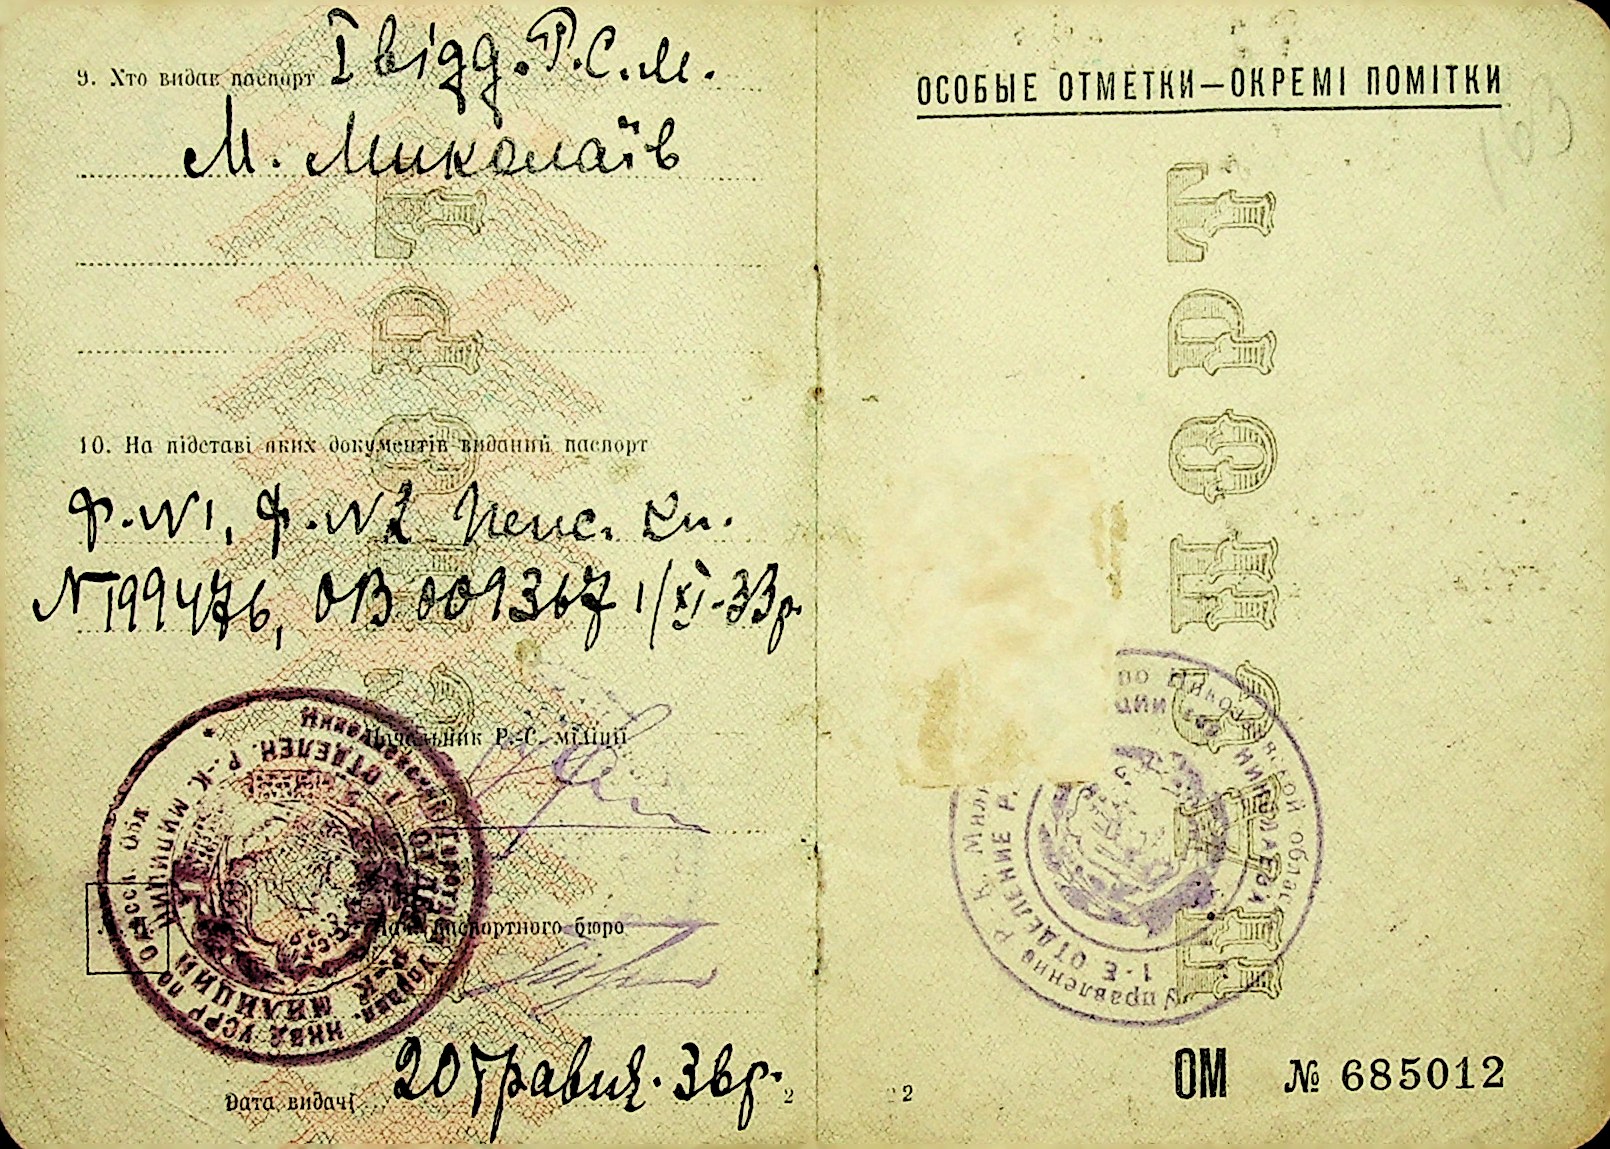 9. Хто видав паспорт I відд. Р.С.М.
М. Миколаїв
10. На підставі яких документів виданий паспорт
Ф. №1, Ф. №2 Пенс. кн.
№ 199476, ОВ 009367 1/XI-33р.
Начальник Р.-С. міліції
Нач. паспортного бюро
Дата видачі 20 травня. 36р.
2
ОСОБЫЕ ОТМЕТКИ—ОКРЕМІ ПОМІТКИ
163
ПАСПОРТ
Управление Р. К. Мили
1-Е ОТДЕЛЕНИЕ Р.
2
ОМ № 685012